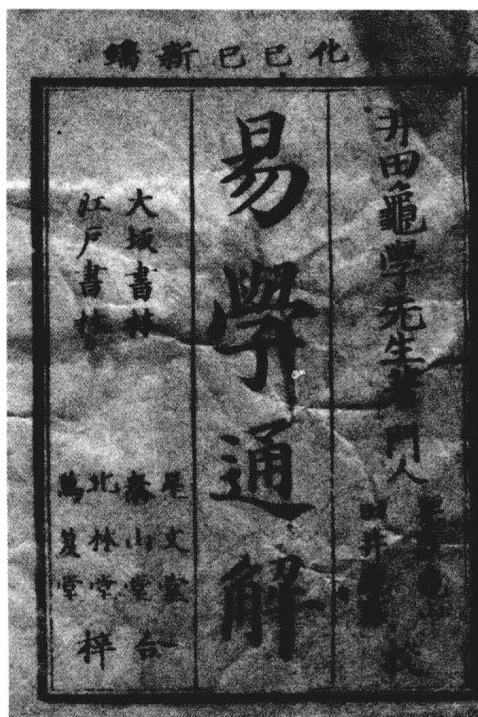 化己巳新鐫
井田龜學先生著 門人
校
易學通解
大坂書林
江戸書林
文堂
泰山堂
北林堂
萬笈堂
合梓